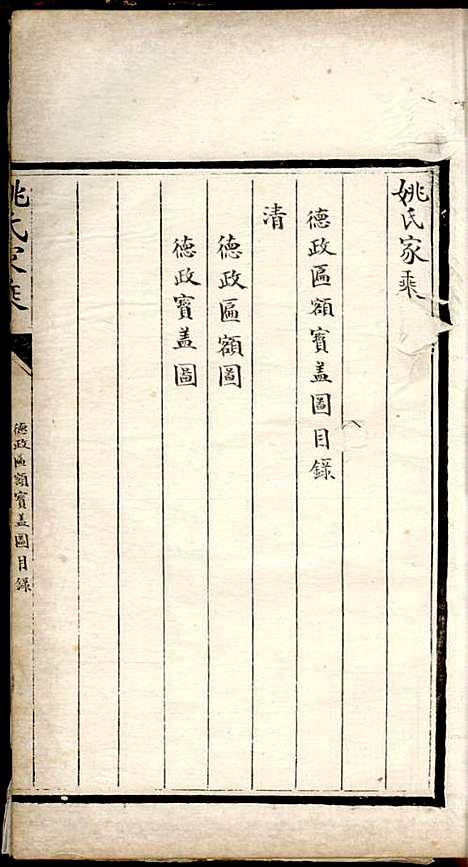 姚氏家乘
德政匾額寶盖圖目錄
清
德政匾額圖
德政寶盖圖
姚氏家乘
德政匾額寶盖圖目錄